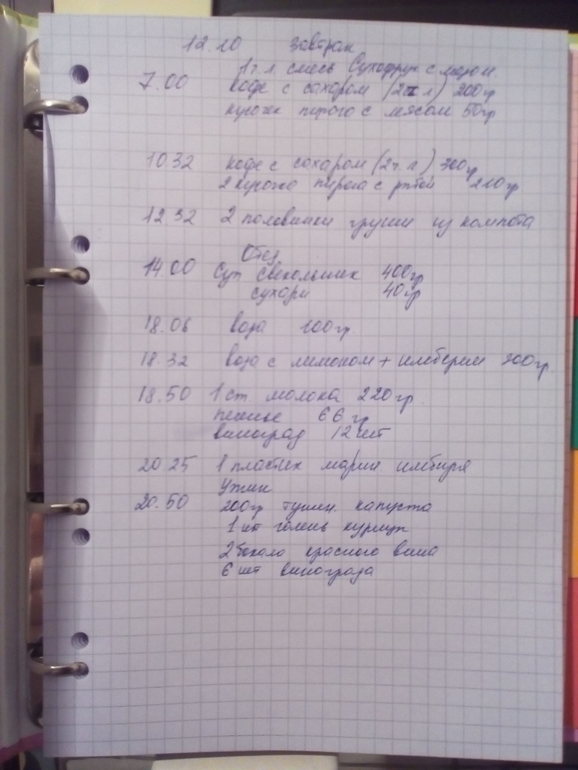 12.10 Завтрак
1 ч.л. смесь Сухофрук с мёдом
7.00 кофе с сахаром (2 л) 200 гр
кусочек пирога с мясом 50 гр
10 32 кофе с сахаром (2 ч. л) 300 гр
2 кусочка пирога с рыбой 210 гр
12 32 2 половинки груши из компота
Обед
14 00 Суп свекольник 400 гр
сухари 40 гр
18.06 вода 100 гр
18.32 вода с лимоном + имбирем 300 гр.
18.50 1 ст. молока 220 гр.
печенье 66 гр
виноград 12 шт
20 25 1 пластик марин имбиря
Ужин
20.50 200 гр тушен. капуста
1 шт голень курицы
2 бокала красного вина
6 шт винограда